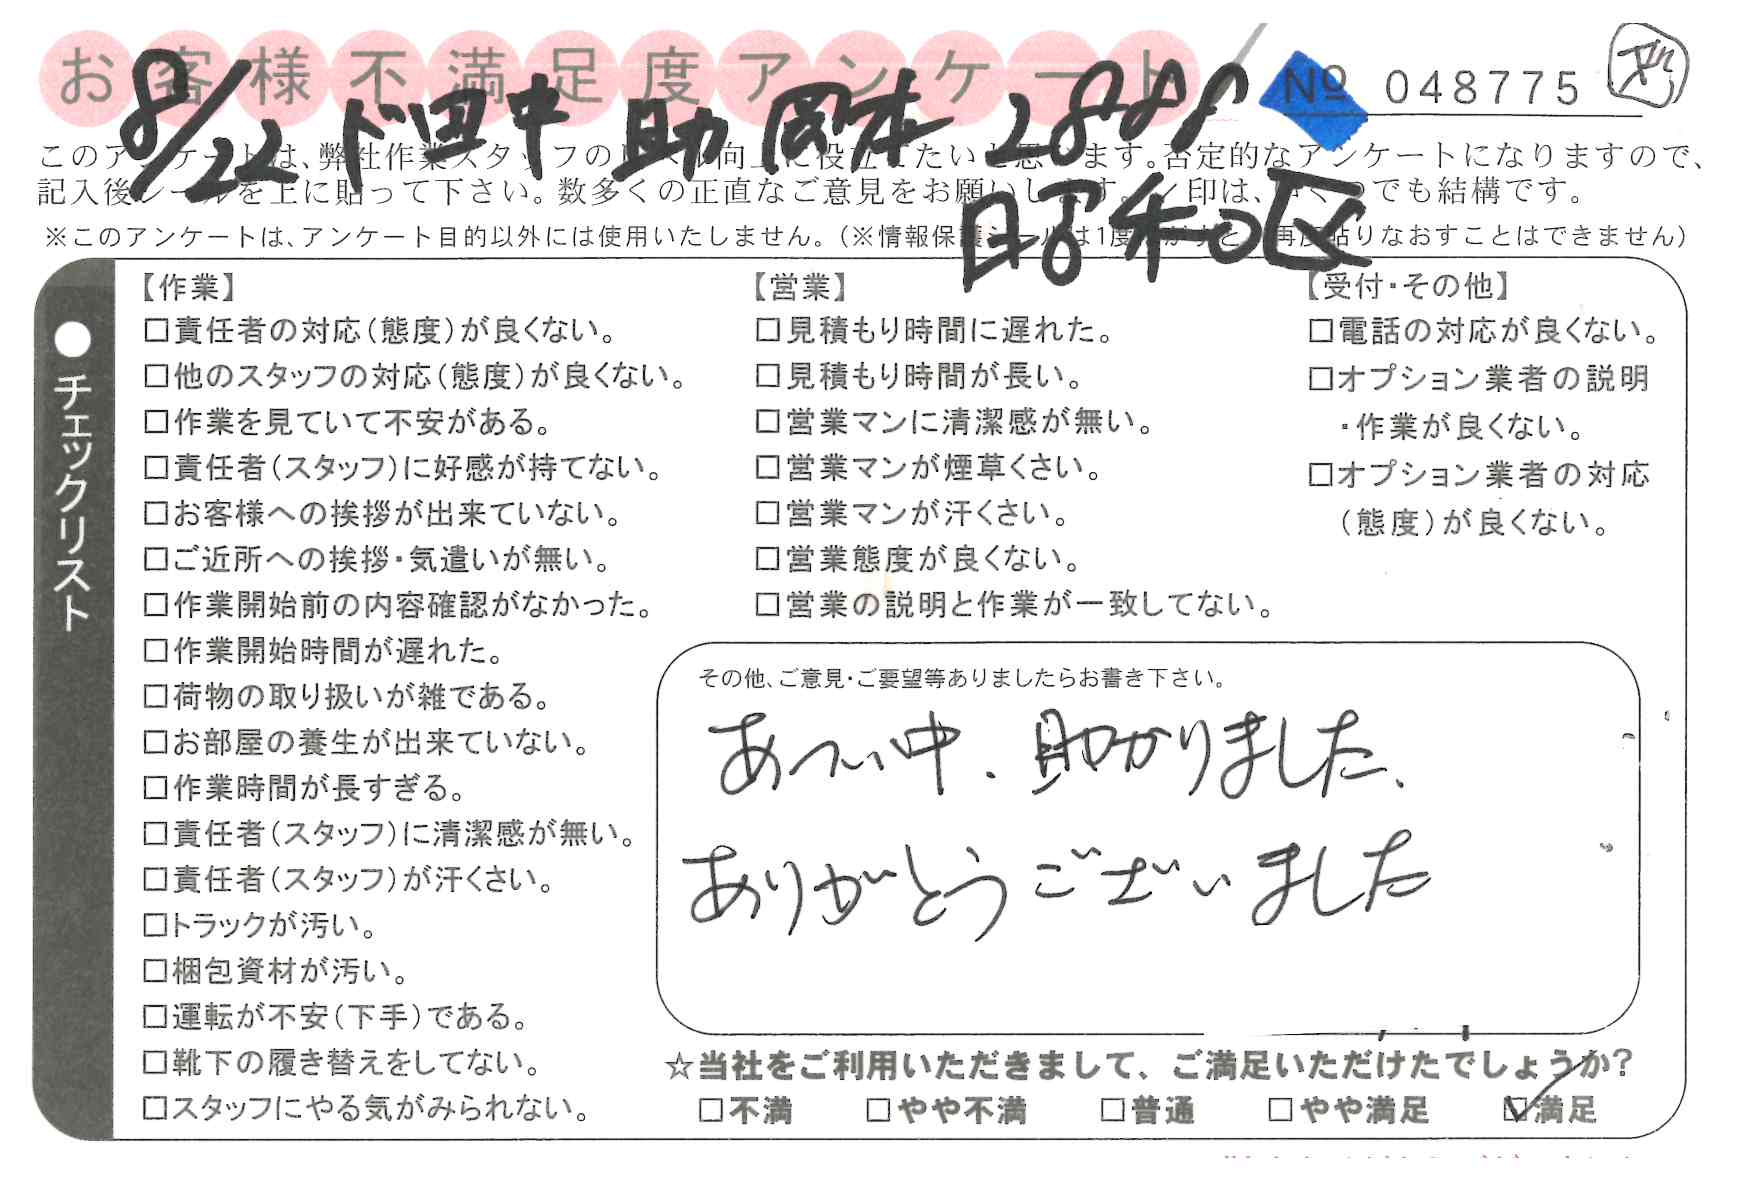 お客様不満足度アンケート
No 048775
8/22 ド田中 助 岡本 2888
昭和区
このアンケートは、弊社作業スタッフのレベル向上に役立てたいと思います。否定的なアンケートになりますので、
記入後シールを上に貼って下さい。数多くの正直なご意見をお願いします。✓印は、いくつでも結構です。
※このアンケートは、アンケート目的以外には使用いたしません。(※情報保護シールは1度はがすと、再度貼りなおすことはできません)
●チェックリスト
【作業】
□責任者の対応(態度)が良くない。
□他のスタッフの対応(態度)が良くない。
□作業を見ていて不安がある。
□責任者(スタッフ)に好感が持てない。
□お客様への挨拶が出来ていない。
□ご近所への挨拶・気遣いが無い。
□作業開始前の内容確認がなかった。
□作業開始時間が遅れた。
□荷物の取り扱いが雑である。
□お部屋の養生が出来ていない。
□作業時間が長すぎる。
□責任者(スタッフ)に清潔感が無い。
□責任者(スタッフ)が汗くさい。
□トラックが汚い。
□梱包資材が汚い。
□運転が不安(下手)である。
□靴下の履き替えをしてない。
□スタッフにやる気がみられない。
【営業】
□見積もり時間に遅れた。
□見積もり時間が長い。
□営業マンに清潔感が無い。
□営業マンが煙草くさい。
□営業マンが汗くさい。
□営業態度が良くない。
□営業の説明と作業が一致してない。
【受付・その他】
□電話の対応が良くない。
□オプション業者の説明
・作業が良くない。
□オプション業者の対応
(態度)が良くない。
その他、ご意見・ご要望等ありましたらお書き下さい。
あつい中、助かりました、
ありがとうございました
☆当社をご利用いただきまして、ご満足いただけたでしょうか?
□不満 □やや不満 □普通 □やや満足 ☑満足